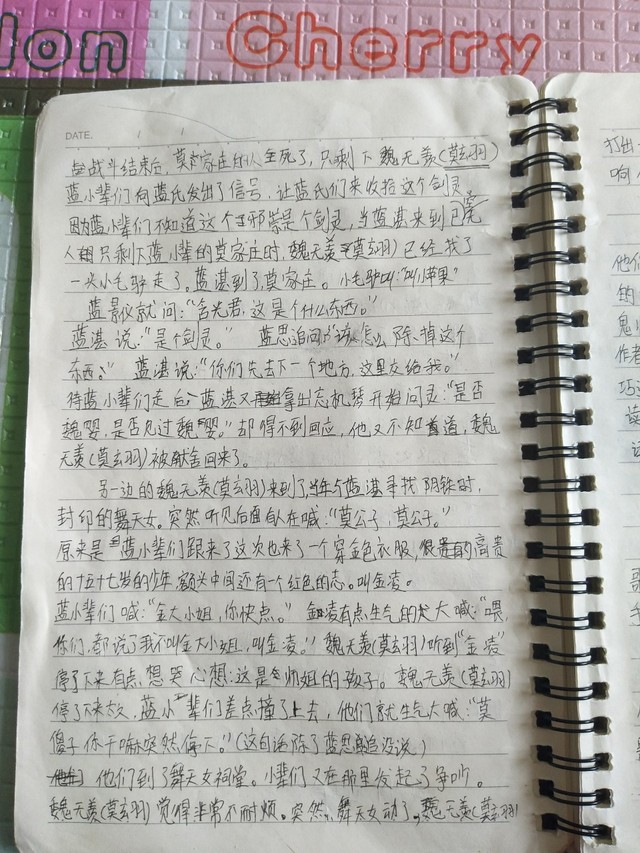 lon Cherry
DATE. / /
战斗结束后,莫家庄的人全死了,只剩下魏无羡(莫玄羽)
蓝小辈们向蓝氏发出了信号,让蓝氏们来收拾这个剑灵
因为蓝小辈们不知道这个邪祟是个剑灵,当蓝湛来到已死
人只剩下蓝小辈的莫家庄时,魏无羡(莫玄羽)已经找了
一头小毛驴走了。蓝湛到了莫家庄。小毛驴叫:"叫小苹果"
蓝景仪就问:"含光君,这是个什么东西。"
蓝湛说:"是个剑灵。" 蓝思追问:"该怎么除掉这个
东西。" 蓝湛说:"你们先去下一个地方,这里交给我。"
待蓝小辈们走后,蓝湛又拿出忘机琴开始问灵:"是否
魏婴,是否见过魏婴。"却得不到回应,他又不知道,魏
无羡(莫玄羽)被献舍回来了。
另一边的魏无羡(莫玄羽)来到了当年与蓝湛寻找阴铁时,
封印的舞天女。突然听见后面有人在喊:"莫公子,莫公子。"
原来是蓝小辈们跟来了这次也来了一个穿金色衣服,很高贵
的十五十七岁的少年额头中间还有一个红色的志。叫金凌。
蓝小辈们喊:"金大小姐,你快点。" 金凌有点生气的大喊:"喂,
你们,都说了我不叫金大小姐,叫金凌。" 魏无羡(莫玄羽)听到"金凌"
停了下来有点,想哭心想:这是师姐的孩子。魏无羡(莫玄羽)
停下来太久,蓝小辈们差点撞了上去,他们就生气大喊:"莫
傻子你干嘛突然停下。"(这句话除了蓝思追没说)
他们到了舞天女祠堂。小辈们又在那里发起了争吵。
魏无羡(莫玄羽)觉得非常不耐烦。突然,舞天女动了,魏无羡(莫玄羽)
打出
响
他们
的
鬼
作者
巧